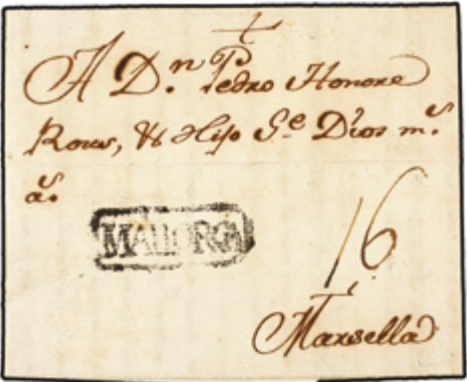 A D.n Pedro Honore
Roux, & Hijo G.e Dios m.s
a.s
MALLORCA
16
Marsella